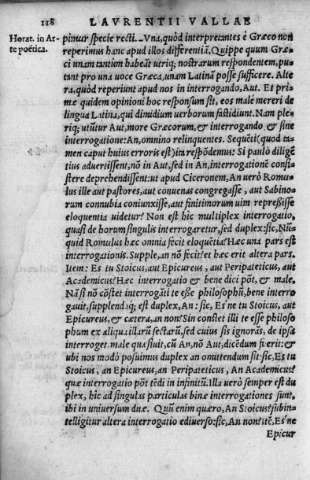 118 LAVRENTII VALLAE
Horat. in Ar
te poëtica.
pimur specie recti. Vna, quòd interpretantes è Græco non
reperimus hanc apud illos differentiã. Quippe quum Græ
ci unam tantùm habeãt utriq; nostrarum respondentem, pu
tant pro una uoce Græca, unam Latinã posse sufficere. Alte
ra, quòd reperiunt apud nos in interrogando, Aut. Et pri
mæ quidem opinioni hoc responsum sit, eos male mereri de
lingua Latina, qui dimidium uerborum fastidiunt. Nam ple
riq; utũtur Aut, more Græcorum, & interrogando & sine
interrogatione: An, omnino relinquentes. Sequẽti, quod ta
men caput huius erroris est, sic respõdemus: Si paulò diligẽ
tius aduertissent, nõ in Aut, sed in An, interrogationẽ consi
stere deprehendissent: ut apud Ciceronem, An uerò Romu
lus ille aut pastores, aut conuenas congregasse, aut Sabino
rum connubia coniunxisse, aut finitimorum uim repreßisse
eloquentia uidetur? Non est hîc multiplex interrogatio,
quasi de horum singulis interrogaretur, sed duplex: sic, Nũ
quid Romulus hæc omnia fecit eloquẽtia? Hæc una pars est
interrogationis. Supple, an nõ fecit? et hæc erit altera pars.
Item: Es tu Stoicus, aut Epicureus, aut Peripateticus, aut
Academicus? Hæc interrogatio & bene dici põt, & male.
Nã si nõ cõstet interrogãti te esse philosophũ, bene interro
gauit, supplendũq; est duplex, An: sic, Es'ne tu Stoicus, aut
Epicureus, & cætera, an non? Sin constet illi te esse philoso
phum ex aliqua illarũ sectarũ, sed cuius sis ignorãs, de ipsa
interroget: male quæsiuit, cũ An, nõ Aut, dicẽdum fuerit: &
ubi nos modò posuimus duplex an omittendum sit: sic, Es tu
Stoicus, an Epicureus, an Peripateticus, An Academicus?
quæ interrogatio põt tẽdi in infinitũ. Illa uerò semper est du
plex, hîc ad singulas particulas binæ interrogationes sunt,
ibi in uniuersum duæ. Quũ enim quæro, An Stoicus? subin-
telligitur altera interrogatio è diuerso: sic, An nonstoicus? Es'ne
Epicur